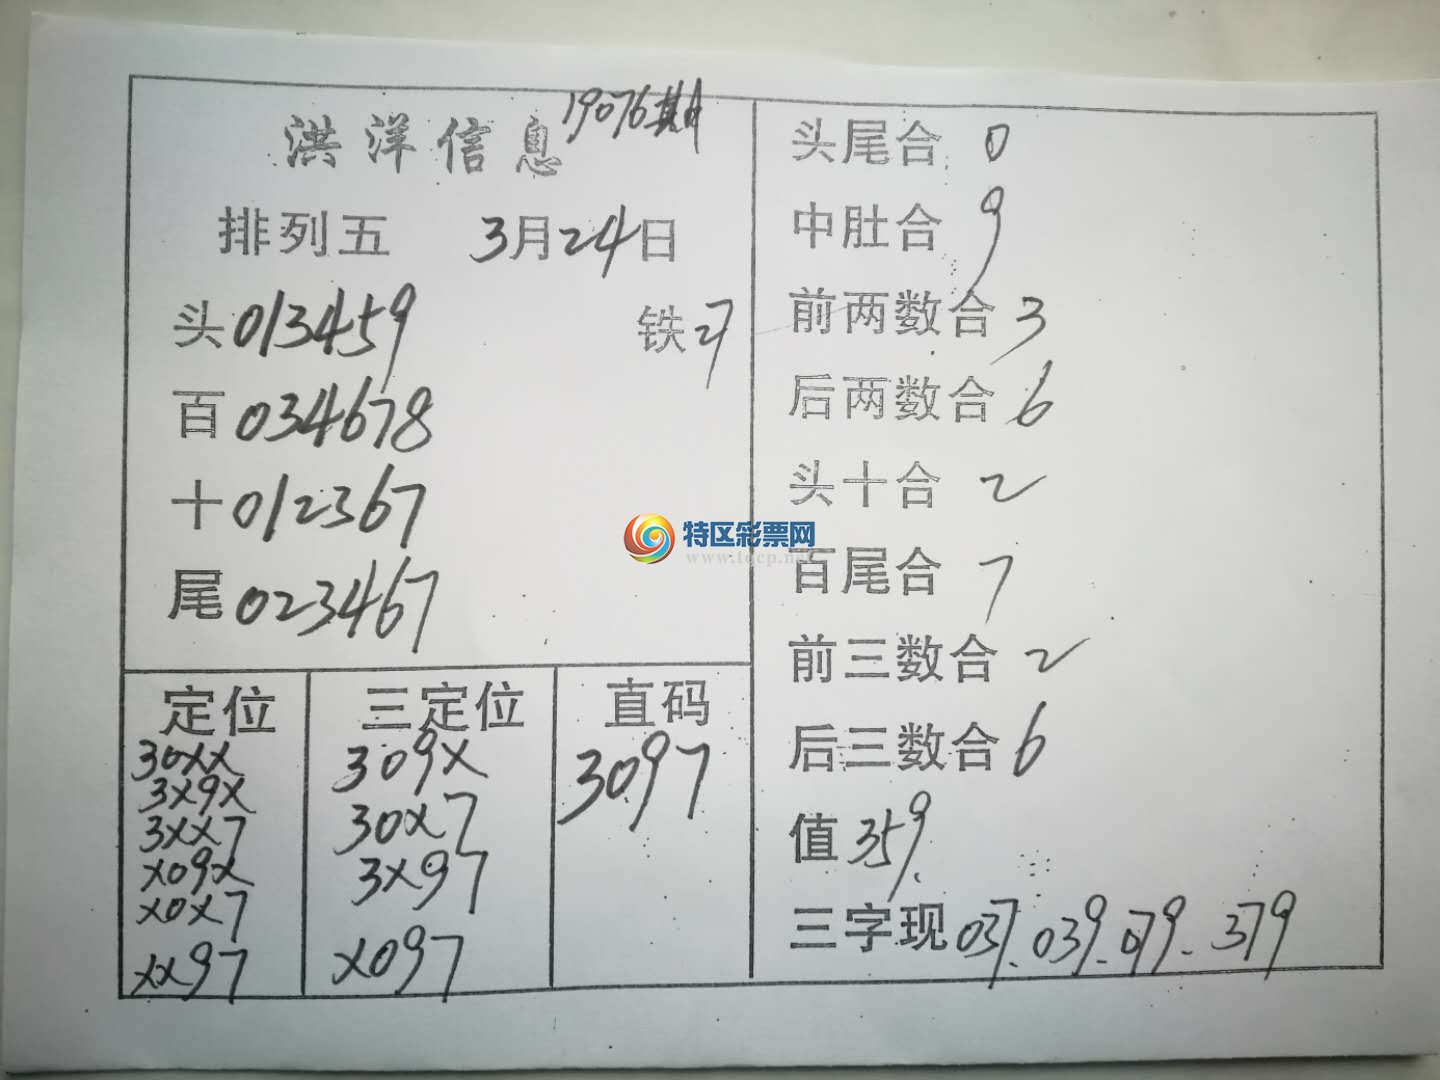 洪洋信息 19076期
排列五 3月24日
头 013459 铁 7
百 034678
十 012367
尾 023467
定位
30XX
3X9X
3XX7
X09X
X0X7
XX97
三定位
309X
30X7
3X97
X097
直码
3097
头尾合 0
中肚合 9
前两数合 3
后两数合 6
头十合 2
百尾合 7
前三数合 2
后三数合 6
值 359.
三字现 037.039.079.379
特区彩票网
www.tqcp.net